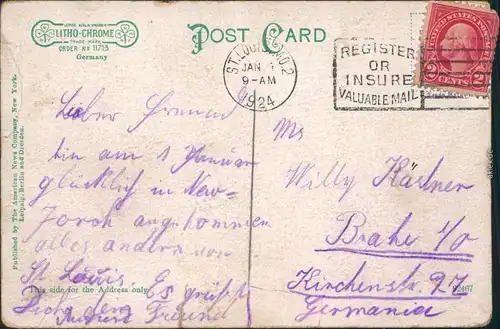 LEIPZIG BERLIN DRESDEN
LITHO-CHROME
TRADE MARK
ORDER NO 11715
Germany
POST CARD
ST. LOUIS, MO. 2
JAN
9-AM
1924
REGISTER
OR
INSURE
VALUABLE MAIL
UNITED STATES POSTAGE
2 CENTS 2
Published by The American News Company, New York.
Leipzig, Berlin and Dresden.
Lieber Freund
bin am 1 Januar
glücklich in New-
Jorck angekommen
alles andere von
St Louis Es grüßt
This side for the Address only.
Dich dein
Freund
Mr
Willy Kästner
Brake i/o
Kirchenstr. 27
Germania